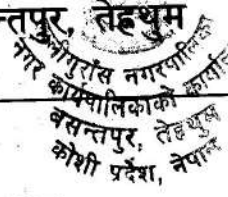 न्तपुर, तेह्रथुम
लालीगुराँस नगरपालिका
नगर कार्यपालिकाको कार्यालय
बसन्तपुर, तेह्रथुम
कोशी प्रदेश, नेपाल